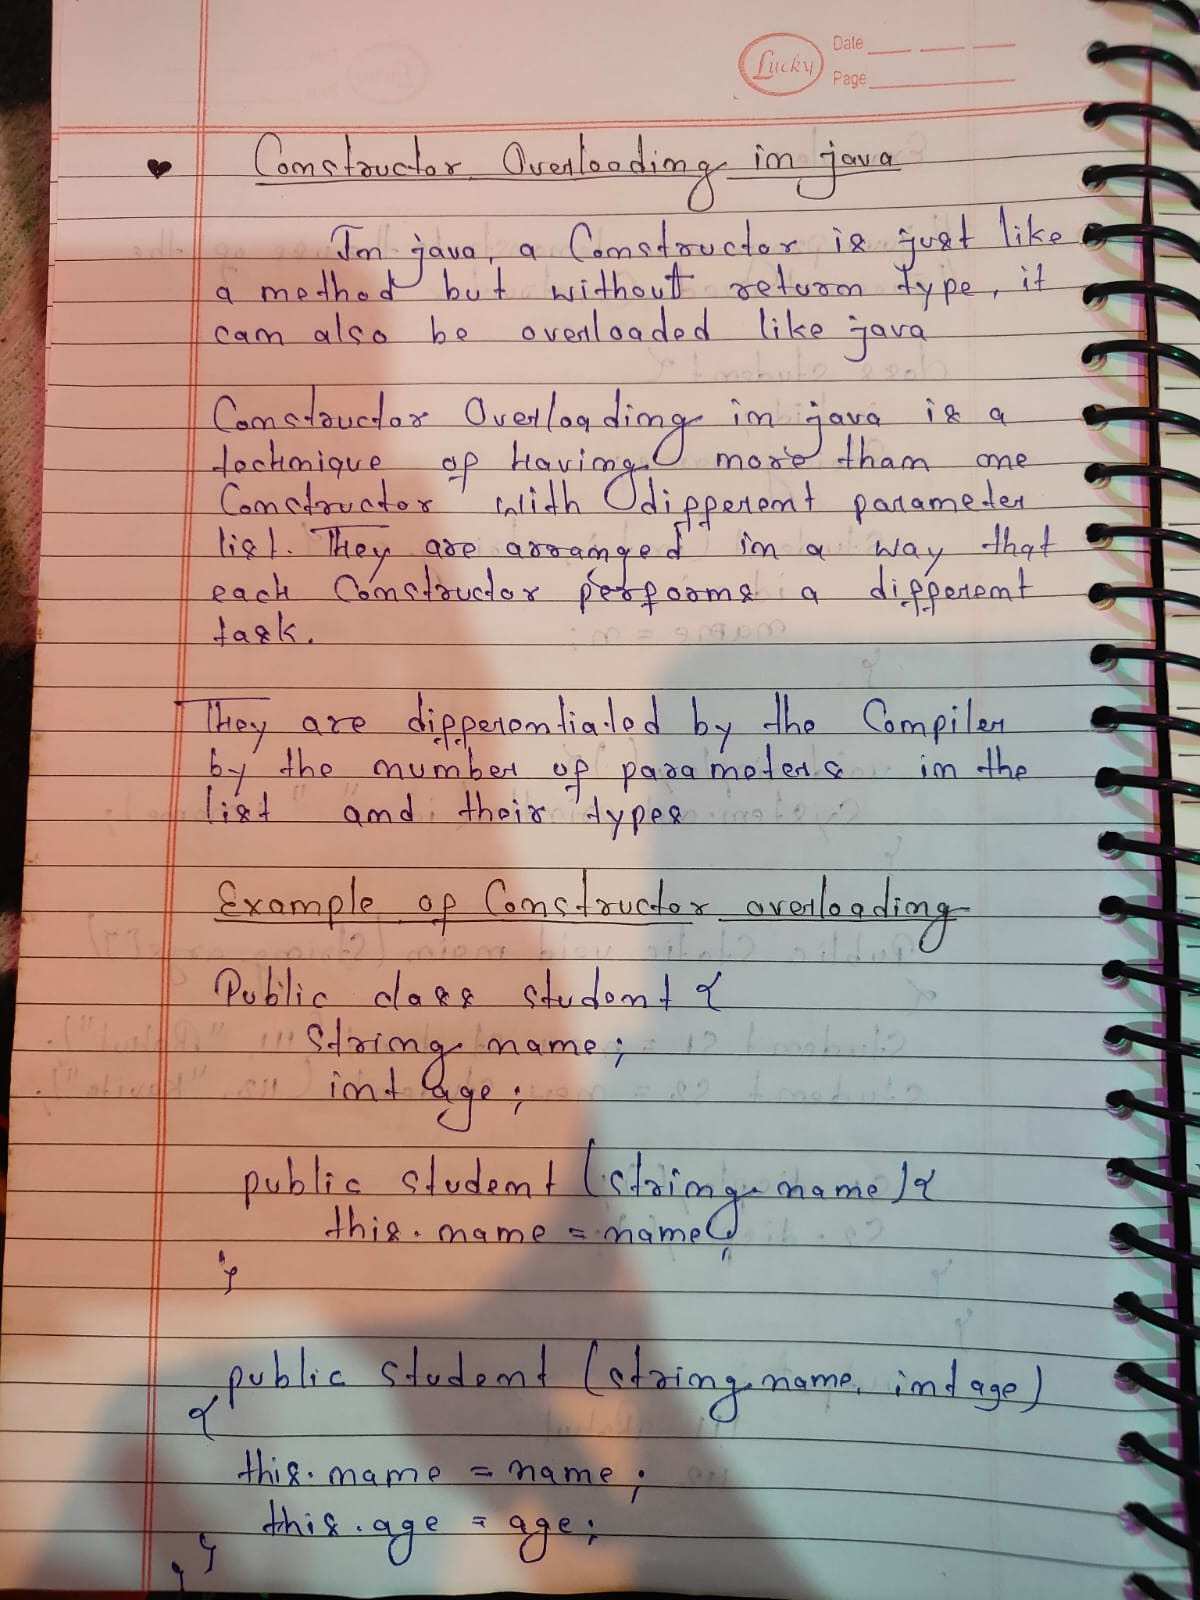 Lucky
Date
Page
Constructor Overloading in java
In java, a Constructor is just like
a method but without return type, it
can also be overloaded like java
Constructor Overloading in java is a
technique of having more than one
Constructor with different parameter
list. They are arranged in a way that
each Constructor performs a different
task.
They are differentiated by the Compiler
by the number of parameters in the
list and their types
Example of Constructor overloading
Public class student {
string name;
int age;
public student (string name) {
this.name = name;
}
public student (string name, int age)
{
this.name = name;
this.age = age;
}
}